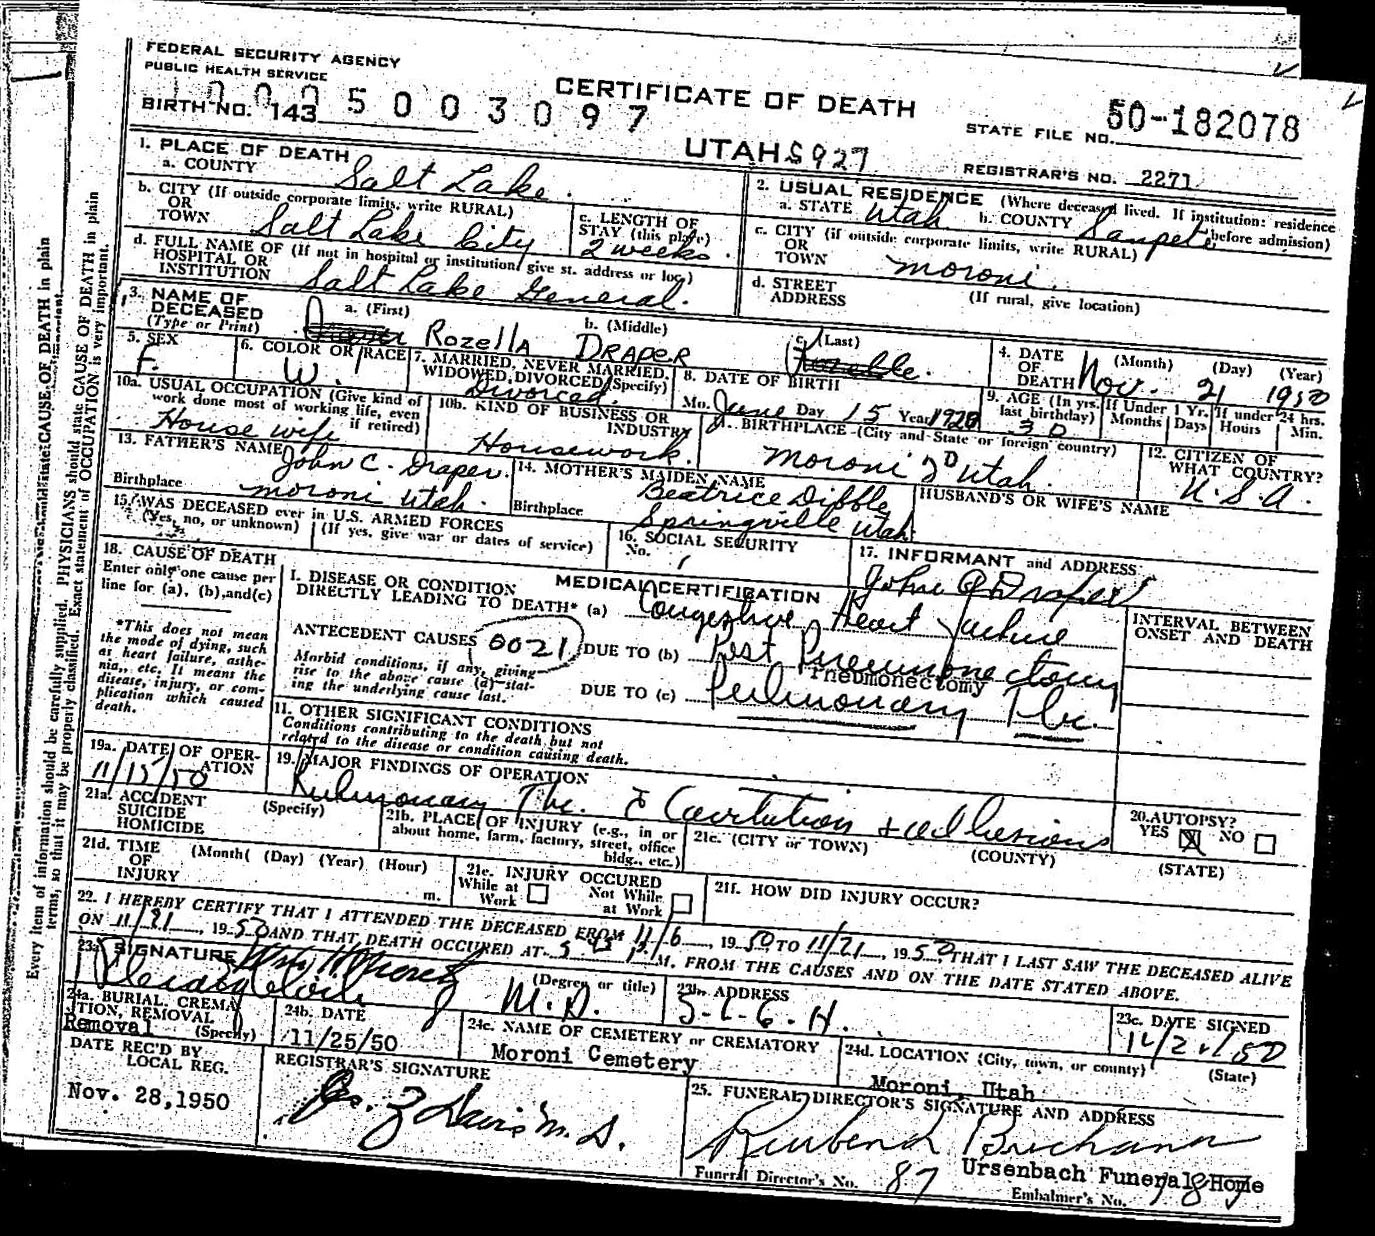 FEDERAL SECURITY AGENCY
PUBLIC HEALTH SERVICE
CERTIFICATE OF DEATH
BIRTH NO. 143
5003097
STATE FILE NO. 50-182078
UTAH S927
REGISTRAR'S NO. 2271
1. PLACE OF DEATH
a. COUNTY Salt Lake.
b. CITY (If outside corporate limits, write RURAL)
OR
TOWN Salt Lake City
c. LENGTH OF
STAY (this place)
2 weeks.
d. FULL NAME OF (If not in hospital or institution, give st. address or loc.)
HOSPITAL OR
INSTITUTION Salt Lake General.
2. USUAL RESIDENCE (Where deceased lived. If institution: residence
before admission)
a. STATE Utah b. COUNTY Sanpete
c. CITY (if outside corporate limits, write RURAL)
OR
TOWN moroni.
d. STREET
ADDRESS
(If rural, give location)
3. NAME OF
DECEASED
(Type or Print)
a. (First)
b. (Middle)
c. (Last)
Rozella DRAPER
4. DATE
OF
DEATH
(Month) (Day) (Year)
Nov. 21 1950
5. SEX
F.
6. COLOR OR RACE
W.
7. MARRIED, NEVER MARRIED,
WIDOWED, DIVORCED (Specify)
Divorced.
8. DATE OF BIRTH
Mo. June Day 15 Year 1920
9. AGE (In yrs.
last birthday)
30
If Under 1 Yr.
Months Days
If under 24 hrs.
Hours Min.
10a. USUAL OCCUPATION (Give kind of
work done most of working life, even
if retired)
House wife
10b. KIND OF BUSINESS OR
INDUSTRY
Housework.
11. BIRTHPLACE (City and State or foreign country)
moroni 2D Utah.
12. CITIZEN OF
WHAT COUNTRY?
U.S.A.
13. FATHER'S NAME
John C. Draper.
Birthplace moroni Utah.
14. MOTHER'S MAIDEN NAME
Beatrice Dibble
Birthplace Springville Utah
HUSBAND'S OR WIFE'S NAME
15. WAS DECEASED ever in U.S. ARMED FORCES
(Yes, no, or unknown) (If yes, give war or dates of service)
16. SOCIAL SECURITY
No.
17. INFORMANT and ADDRESS
John C Draper
18. CAUSE OF DEATH
Enter only one cause per
line for (a), (b), and (c)
*This does not mean
the mode of dying, such
as heart failure, asthe-
nia, etc. It means the
disease, injury, or com-
plication which caused
death.
MEDICAL CERTIFICATION
I. DISEASE OR CONDITION
DIRECTLY LEADING TO DEATH* (a) Congestive Heart Failure
ANTECEDENT CAUSES 0021 DUE TO (b) Post Pneumonectomy
Pneumonectomy
Morbid conditions, if any, giving
rise to the above cause (a) stat-
ing the underlying cause last.
DUE TO (c) Pulmonary Tbc.
INTERVAL BETWEEN
ONSET AND DEATH
11. OTHER SIGNIFICANT CONDITIONS
Conditions contributing to the death but not
related to the disease or condition causing death.
19a. DATE OF OPER-
ATION
11/15/50
19. MAJOR FINDINGS OF OPERATION
Pulmonary Tbc. c Cavitation + adhesions
20. AUTOPSY?
YES NO
21a. ACCIDENT
SUICIDE
HOMICIDE
(Specify)
21b. PLACE OF INJURY (e.g., in or
about home, farm, factory, street, office
bldg., etc.)
21c. (CITY or TOWN)
(COUNTY)
(STATE)
21d. TIME
OF
INJURY
(Month) (Day) (Year) (Hour)
m.
21e. INJURY OCCURED
While at
Work
Not While
at Work
21f. HOW DID INJURY OCCUR?
22. I HEREBY CERTIFY THAT I ATTENDED THE DECEASED FROM 11/6, 1950 TO 11/21, 1950 THAT I LAST SAW THE DECEASED ALIVE
ON 11/21, 1950 AND THAT DEATH OCCURED AT M. FROM THE CAUSES AND ON THE DATE STATED ABOVE.
23a. SIGNATURE
(Degree or title)
M.D.
23b. ADDRESS
S.L.G.H.
23c. DATE SIGNED
24a. BURIAL, CREMA-
TION, REMOVAL
Removal (Specify)
24b. DATE
11/25/50
24c. NAME OF CEMETERY or CREMATORY
Moroni Cemetery
24d. LOCATION (City, town, or county)
(State)
Moroni, Utah
DATE REC'D BY
LOCAL REG.
Nov. 28, 1950
REGISTRAR'S SIGNATURE
25. FUNERAL DIRECTOR'S SIGNATURE AND ADDRESS
Ursenbach Funeral Home
Funeral Director's No. 87
Embalmer's No.
Every item of information should be carefully supplied. PHYSICIANS should state CAUSE OF DEATH in plain
terms, so that it may be properly classified. Exact statement of OCCUPATION is very important.